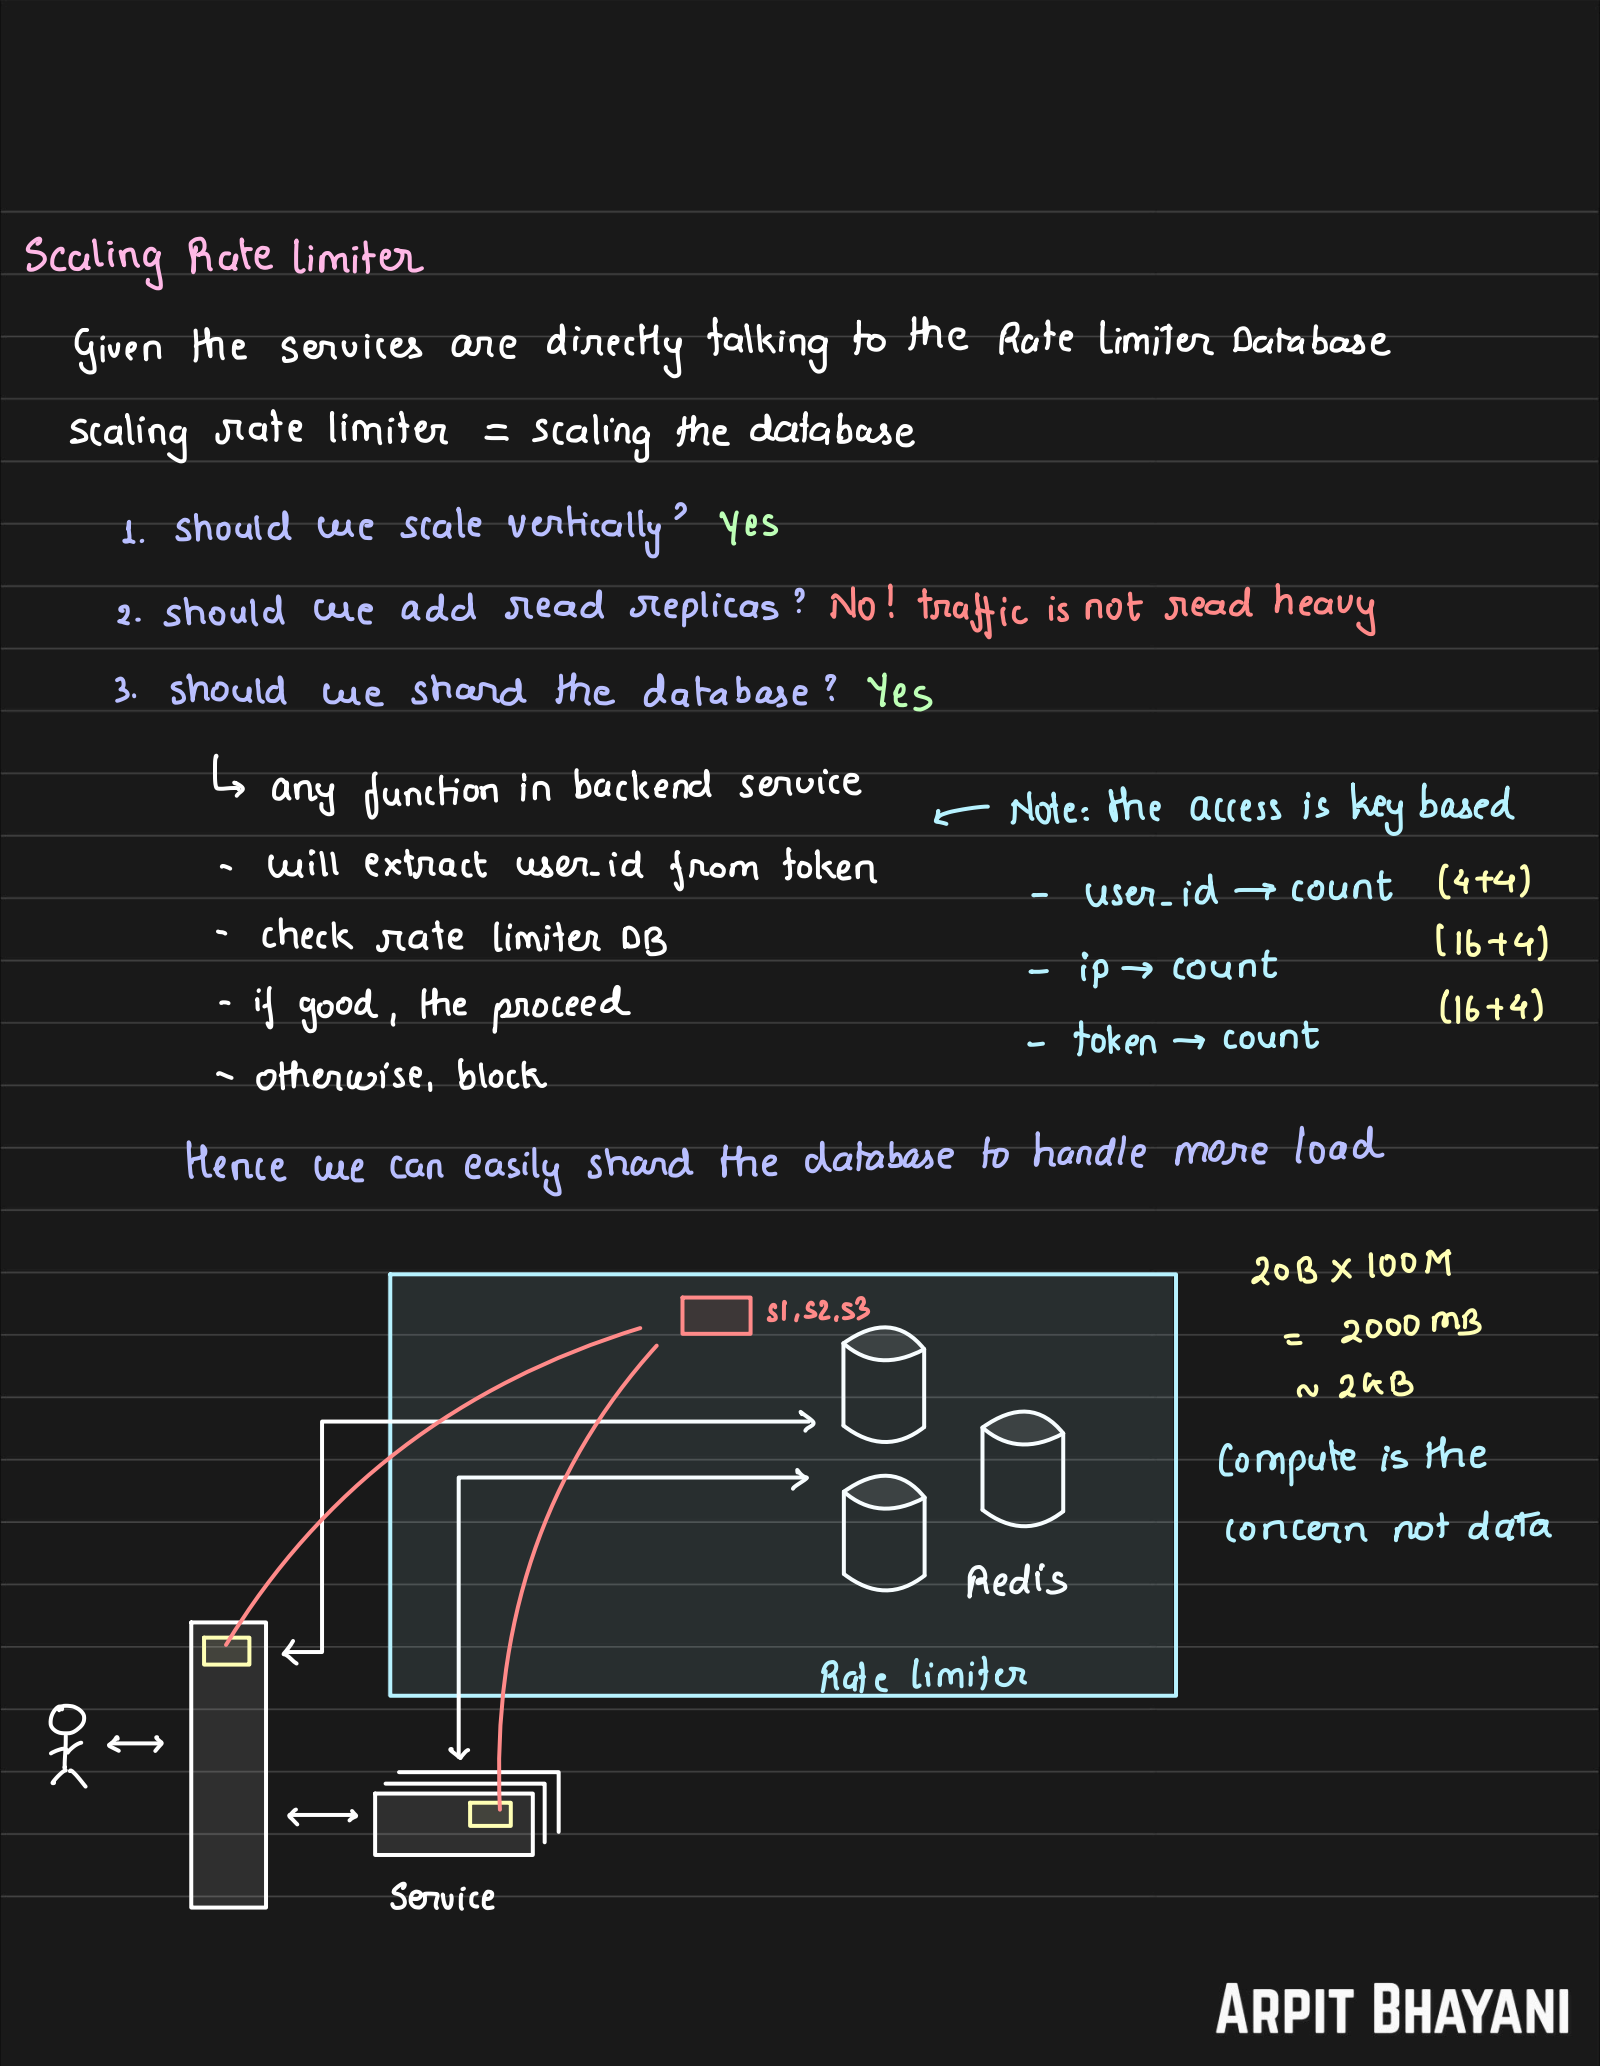 Scaling Rate limiter
Given the services are directly talking to the Rate Limiter Database
scaling rate limiter = scaling the database
1. should we scale vertically? Yes
2. should we add read replicas? No! traffic is not read heavy
3. should we shard the database? Yes
↳ any function in backend service
- will extract user_id from token
- check rate limiter DB
- if good, the proceed
- otherwise, block
← Note: the access is key based
- user_id → count (4+4)
- ip → count (16+4)
- token → count (16+4)
Hence we can easily shard the database to handle more load
s1, s2, s3
Redis
Rate limiter
20B x 100M
= 2000 MB
~ 2GB
Compute is the
concern not data
Service
ARPIT BHAYANI